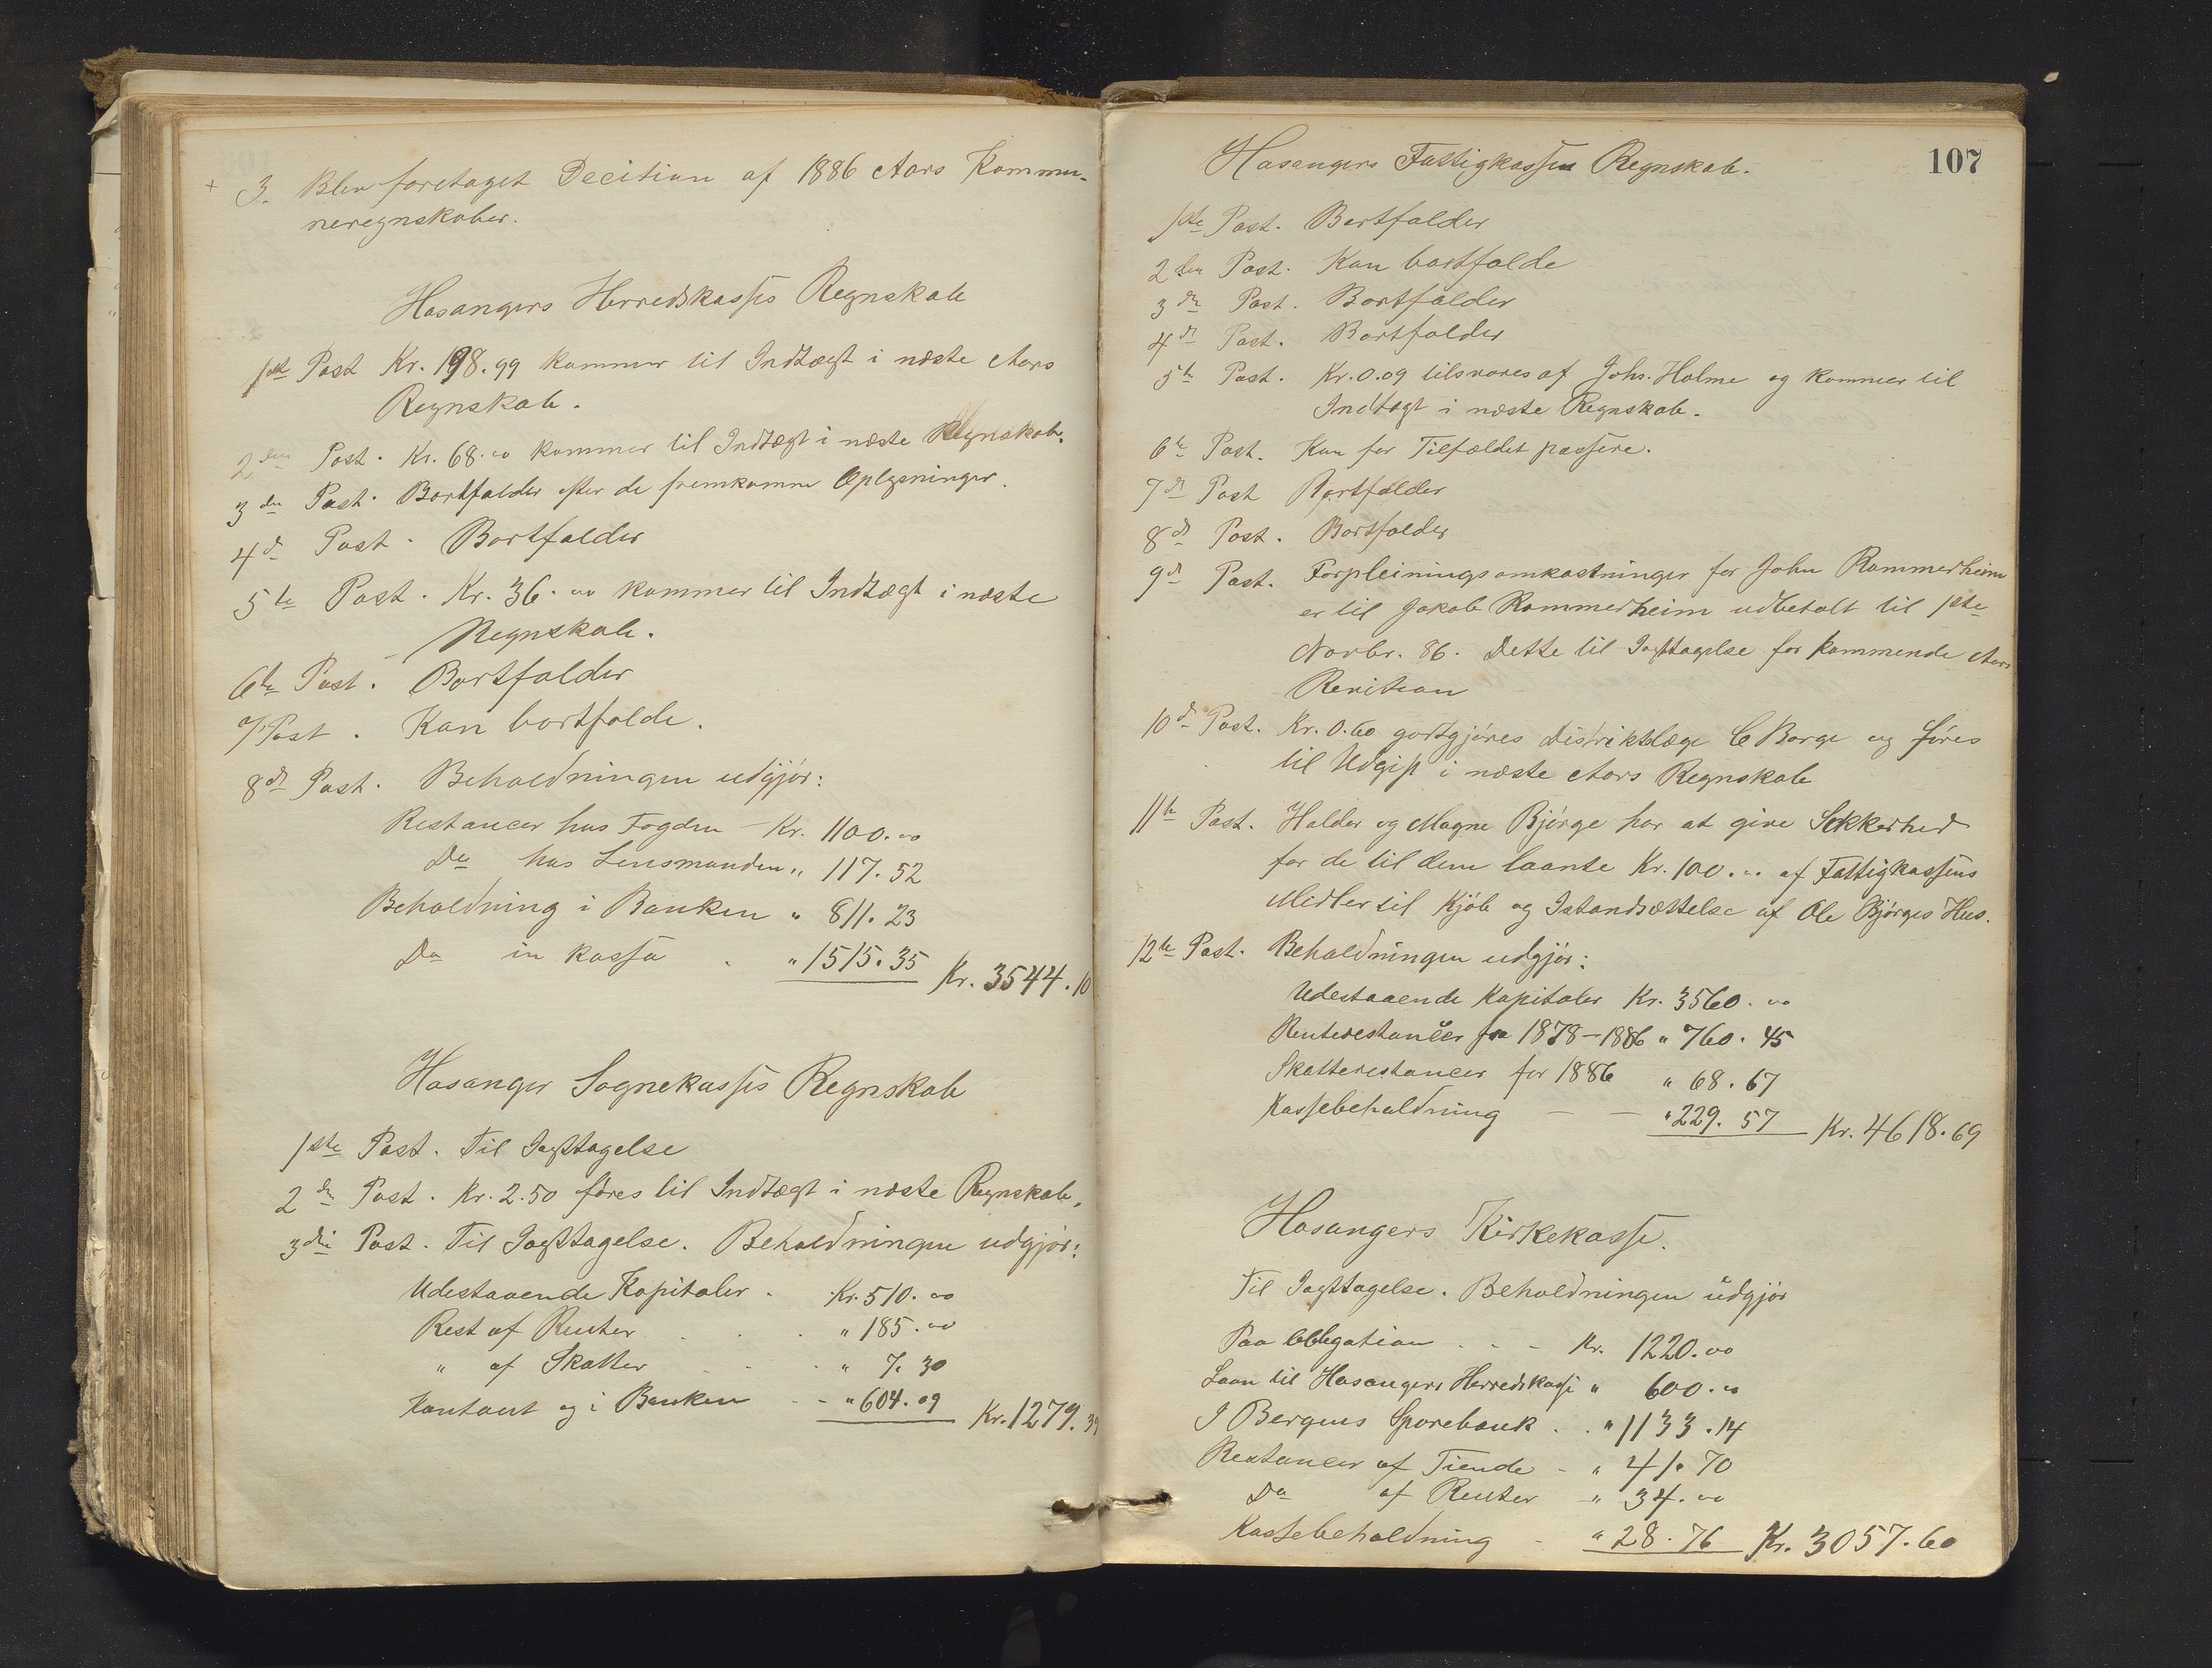 + 3. Blev foretaget Decition af 1886 Aars Kommu-
neregnskaber.
Hosangers Herredskasses Regnskab
1ste Post Kr. 198.99 kommer til Indtægt i næste Aars
Regnskab.
2den Post. Kr. 68.00 kommer til Indtægt i næste Regnskab.
3die Post. Bortfalder efter de fremkomne Oplysninger.
4d Post. Bortfalder
5te Post. Kr. 36.00 kommer til Indtægt i næste
Regnskab.
6te Post. Bortfalder
7 Post. Kan bortfalde.
8d Post. Beholdningen udgjør:
Restancer hos Fogden - Kr. 1100.00
Do hos Lensmanden " 117.52
Beholdning i Banken " 811.23
Do in kassa . " 1515.35 Kr. 3544.10
Hosanger Sognekasses Regnskab
1ste Post. Til Iagttagelse
2den Post. Kr. 2.50 føres til Indtægt i næste Regnskab.
3die Post. Til Iagttagelse. Beholdningen udgjør:
Udestaaende Kapitaler . Kr. 510.00
Rest af Renter . . . " 185.00
" af Skatter - - . " 7.30
Kontant og i Banken - - " 604.09 Kr. 1279.39
107
Hosangers Fattigkasses Regnskab.
1ste Post. Bortfalder
2den Post. Kan bortfalde
3die Post. Bortfalder
4d Post. Bortfalder
5te Post. Kr. 0.09 tilsvares af Johs. Holme og kommer til
Indtægt i næste Regnskab.
6te Post. Kan for Tilfældet passere.
7d Post Bortfalder
8d Post. Bortfalder
9d Post. Forpleiningsomkostninger for John Rommerheim
er til Jakob Rommerheim udbetalt til 1ste
Novbr. 86. Dette til Iagttagelse for kommende Aars
Revition
10d Post. Kr. 0.60 godtgjøres Distriktslæge C Borge og føres
til Udgift i næste Aars Regnskab
11te Post. Haldor og Magne Bjørge har at give Sikkerhed
for de til dem laante Kr. 100.00 af Fattigkassens
Midler til Kjøb og Istandsættelse af Ole Bjørges Hus.
12te Post. Beholdningen udgjør:
Udestaaende Kapitaler Kr. 3560.00
Renterestancer fra 1878-1886 " 760.45
Skatterestancer for 1886 " 68.67
Kassebeholdning - - " 229.57 Kr. 4618.69
Hosangers Kirkekasse.
Til Iagttagelse. Beholdningen udgjør
Paa Obligation . - - Kr. 1220.00
Laan til Hosangers Herredskasse " 600.00
I Bergens Sparebank . . " 1133.14
Restancer af Tiende - " 41.70
Do af Renter - " 34.00
Kassebeholdning - " 28.76 Kr. 3057.60